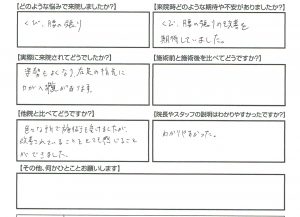 【どのような悩みで来院しましたか?】
くび、腰の張り
【来院時どのような期待や不安がありましたか?】
くび、腰の張りの改善を
期待していました。
【実際に来院されてどうでしたか?】
姿勢もよくなり、左足の指先に
力が入る感があります。
【施術前と施術後を比べてどうですか?】
【他院と比べてどうですか?】
色々な所で施術を受けましたが、
改善されていることをとても感じること
ができました。
【院長やスタッフの説明はわかりやすかったですか?】
わかりやすかった。
【その他、何かひとことお願いします】